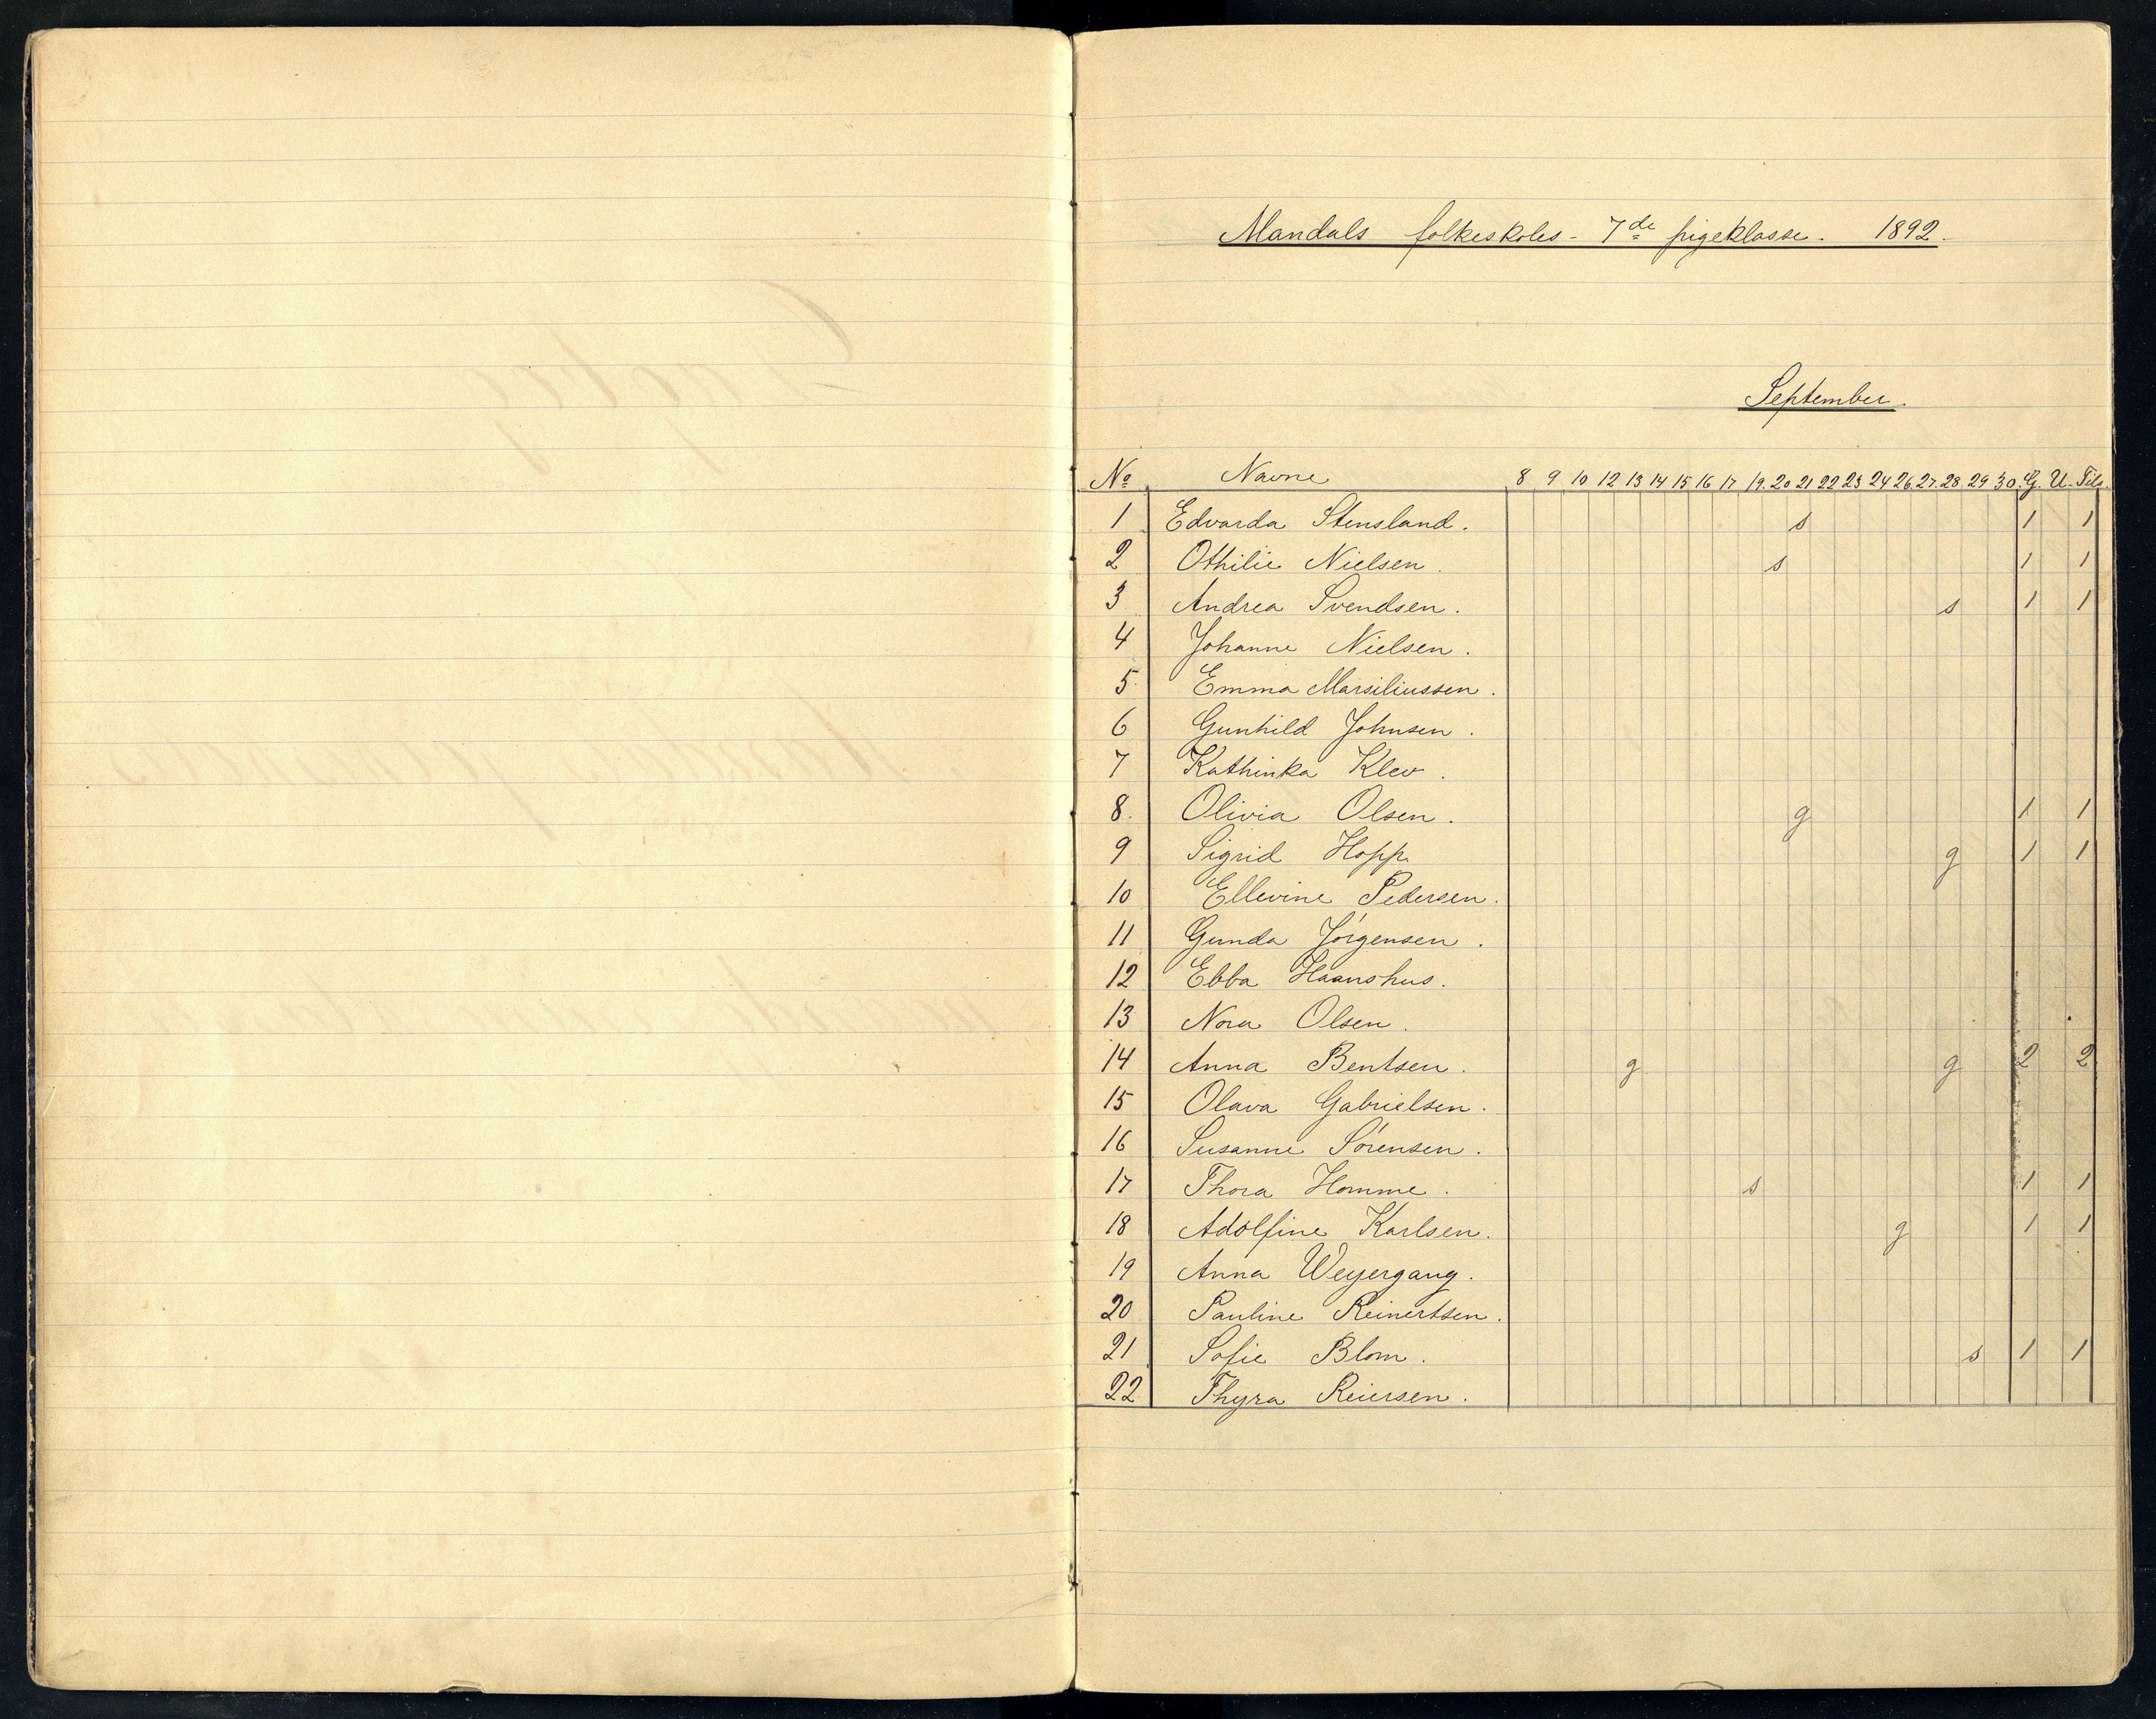 Mandals folkeskoles - 7de pigeklasse. 1892.
September.
No Navne 8 9 10 12 13 14 15 16 17 19. 20 21 22 23 24 26. 27. 28 29 30. G. U. Tils.
1 Edvarda Stensland. s 1 1
2 Othilie Nielsen. s 1 1
3 Andrea Svendsen. s 1 1
4 Johanne Nielsen.
5. Emma Marsiliussen.
6 Gunhild Johnsen.
7 Kathinka Klev.
8. Olivia Olsen. g 1 1
9 Sigrid Hopp. g 1 1
10 Ellevine Pedersen.
11 Gunda Jórgensen.
12 Ebba Haanshus.
13 Nora Olsen.
14 Anna Bentsen. g g 2 2
15 Olava Gabrielsen.
16 Susanne Sórensen.
17 Thora Homme. s 1 1
18 Adolfine Karlsen. g 1 1
19 Anna Weyergang.
20 Pauline Reinertsen.
21 Sofie Blom. s 1 1
22 Thyra Reiersen.